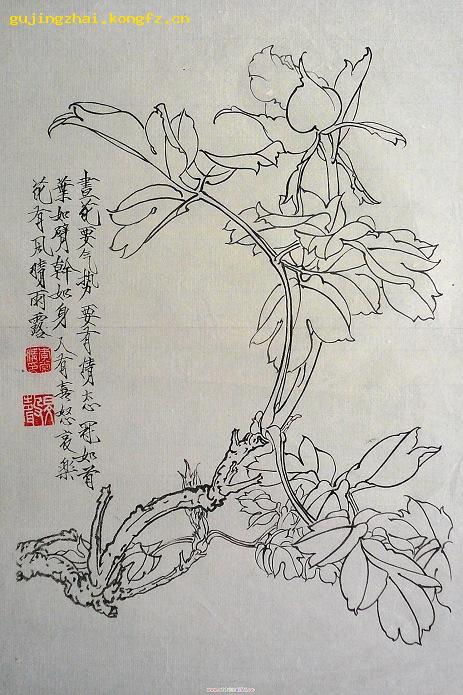 gujingzhai.kongfz.cn
畫花要气势要有情态冠如首
葉如臂幹如身人有喜怒哀樂
花有风晴雨露